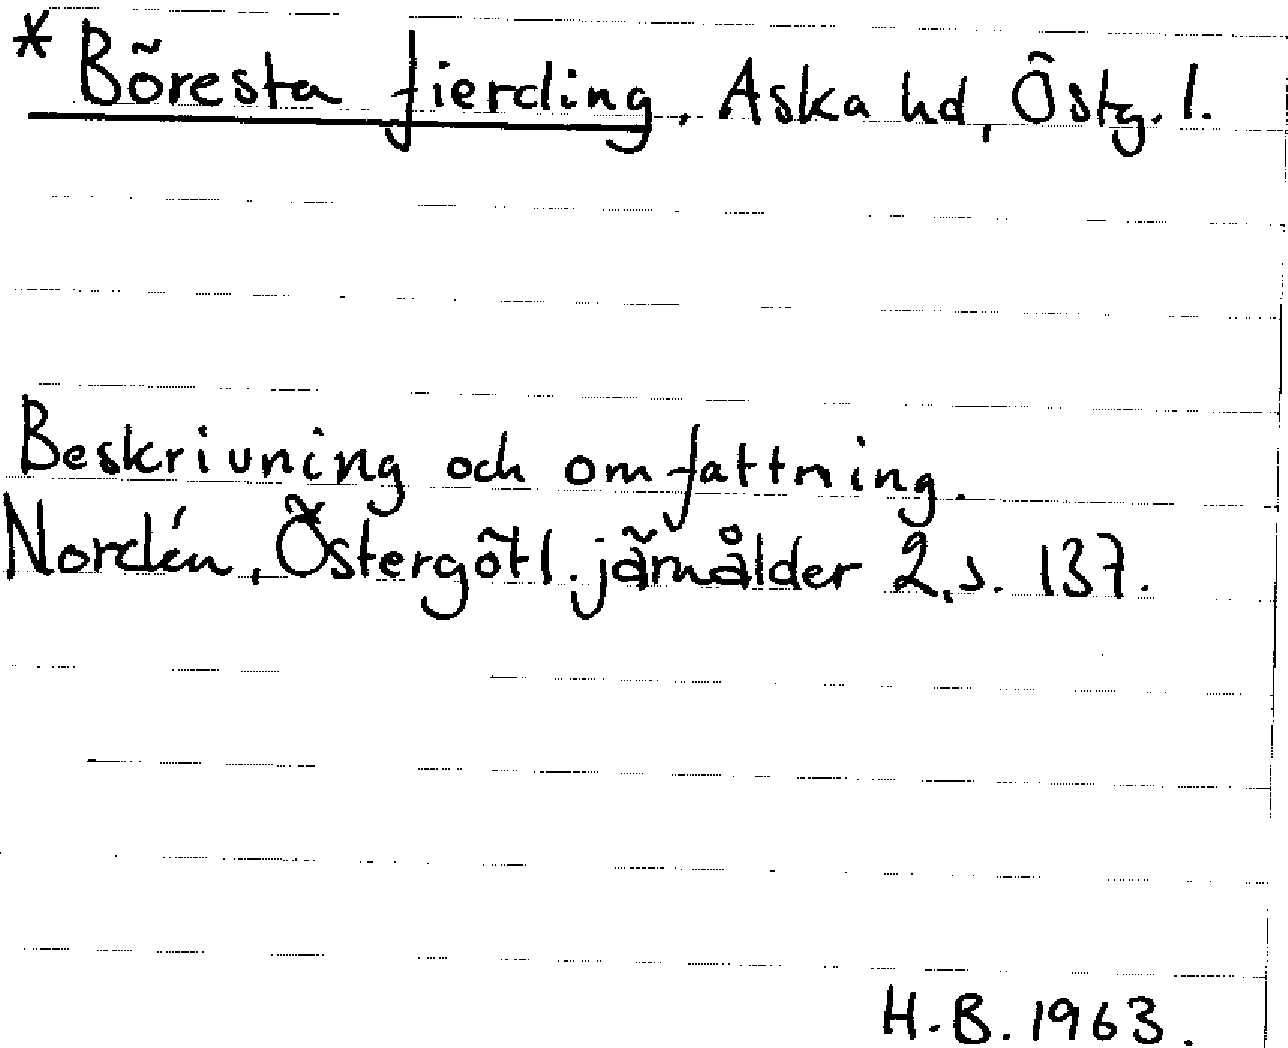 * Böresta fierding, Aska hd, Östg. l.
Beskrivning och omfattning.
Nordén, Östergötl. järnålder 2, s. 137.
H.B. 1963.